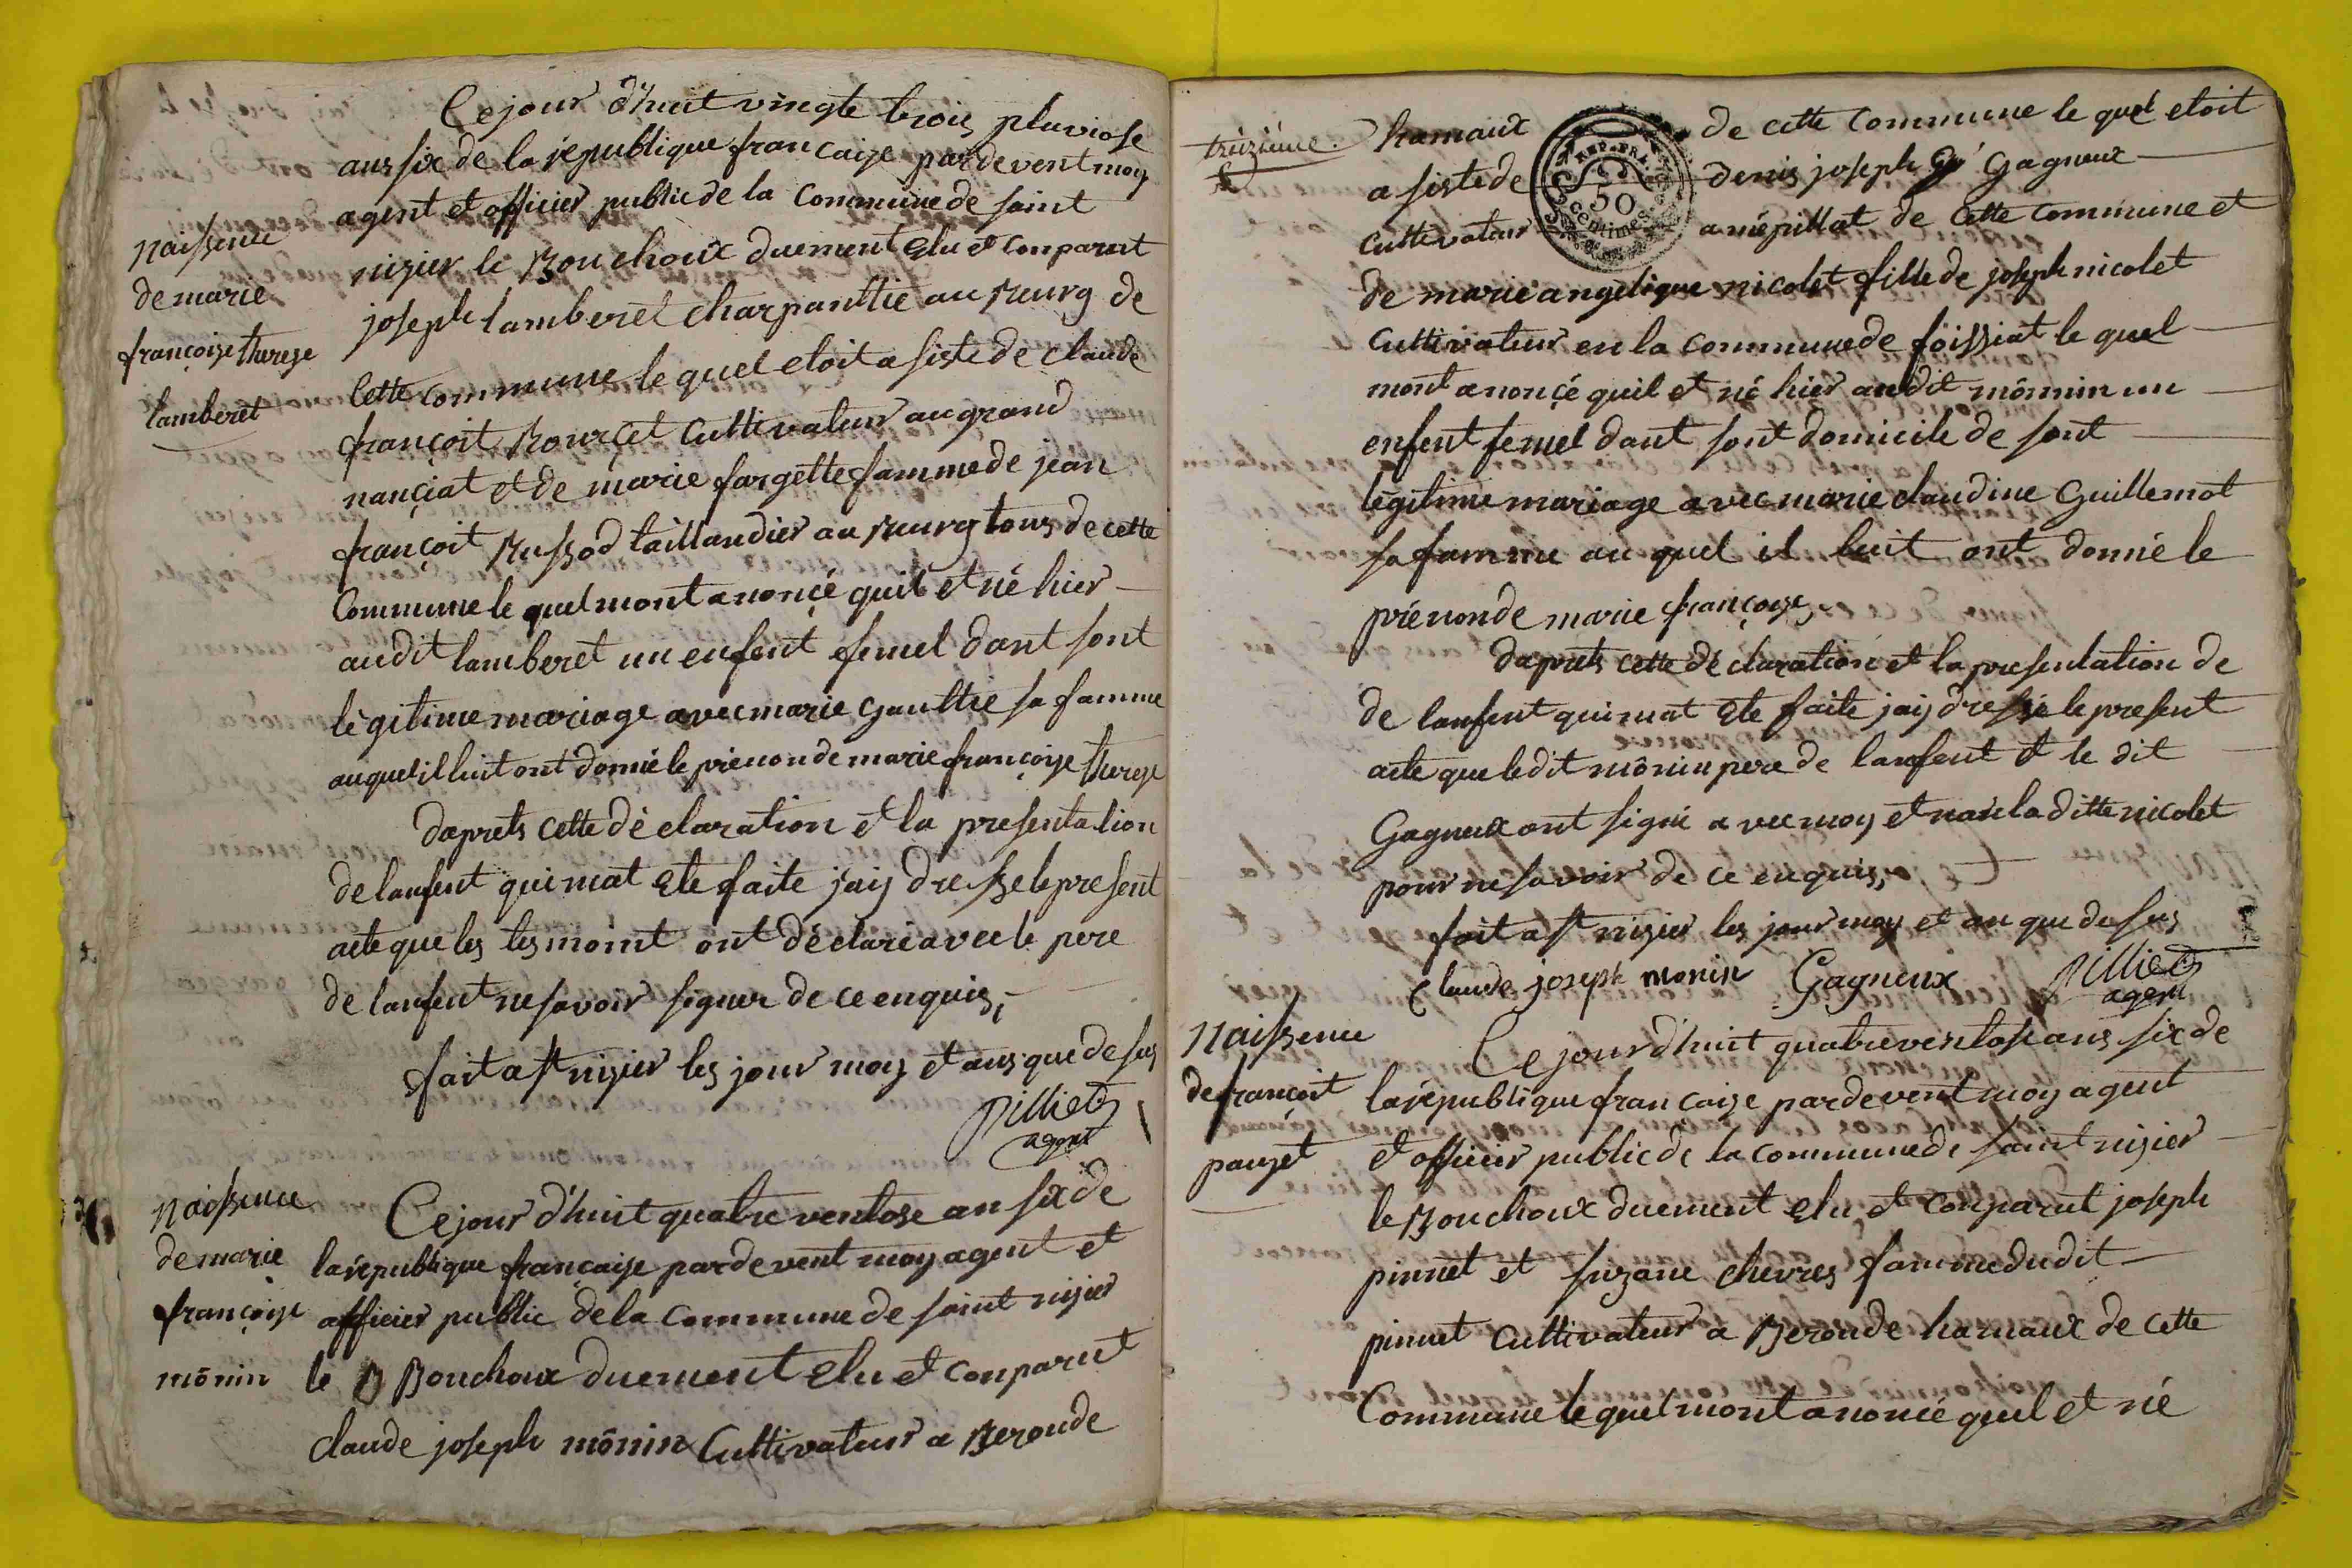 Ce jour d'huit vingte trois pluviose
ans six de la republique francaize pardevent moy
agent et officier public de la commune de saint
nizier le Bouchoux duement Elu et conparut
joseph lamberet charpanttié au Bourg de
Cette commune le quel etoit a siste de claude
françoit Bourcet cultivateur au grand
nançiat et de marie fargette famme de jean
françoit Bussod taillandier au Bourg tous de cette
Commune le quel mont anoncé quil et né hier
audit lamberet un enfent femel dant sont
légitime mariage avec marie Gaulttié sa famme
au quel il luit ont donné le prénon de marie françoize therese
daprets cette déclaration et la presentation
de lanfent qui mat Ete faite jaiy dressé le present
acte que les tesmoint ont déclaré avec le pere
de lanfent ne savoir signer de ce enquis,
fait a st nizier les jour moy et ans que desus
Pilliet
agent
Naissence
de marie
françoize therese
lamberet
Naissence
de marie
françoize
mônin
Ce jour d'huit quatre ventose an six de
la republique françaize pardevent moy agent et
officier public de la commune de saint nizier
le B Bouchoux duement Elu et conparut
claude joseph mônin Cultivateur a Beronde
treizième.
hamaux de cette commune le quel etoit
a siste de denis joseph G Gagneux
cultivateur a mépillat de cette commune et
de marie angelique nicolet fille de joseph nicolet
cultivateur en la commune de foissiat le quel
mont anonçé quil et né hier audit mônnin un
enfent femel dant sont domicile de sont
legitime mariage avec marie claudine Guillemot
sa famme au quel il luit ont donné le
prénon de marie françoize,
daprets cette déclaration et la presentation de
de lanfent qui mat Ete faite jaiy dressé le present
acte que ledit mônin pere de lanfent et le dit
Gagneux ont signé avec moy et non la ditte nicolet
pour ne savoir de ce enquis,
fait a st nizier les jour moy et an que desus
Claude joseph monin Gagneux Pilliet
agent
Naissence
de françoit
pauget
Ce jour d'huit quatre ventose ans six de
la république francaize pardevent moy agent
et officier public de la commune de saint nizier
le Bouchoux duement Elu et conparut joseph
pinnet et suzane chevres famme dudit
pinnet cultivateur a Beronde hamaux de cette
Commune le quel mont anoncé quil et né
REP. FRA.
50
centimes